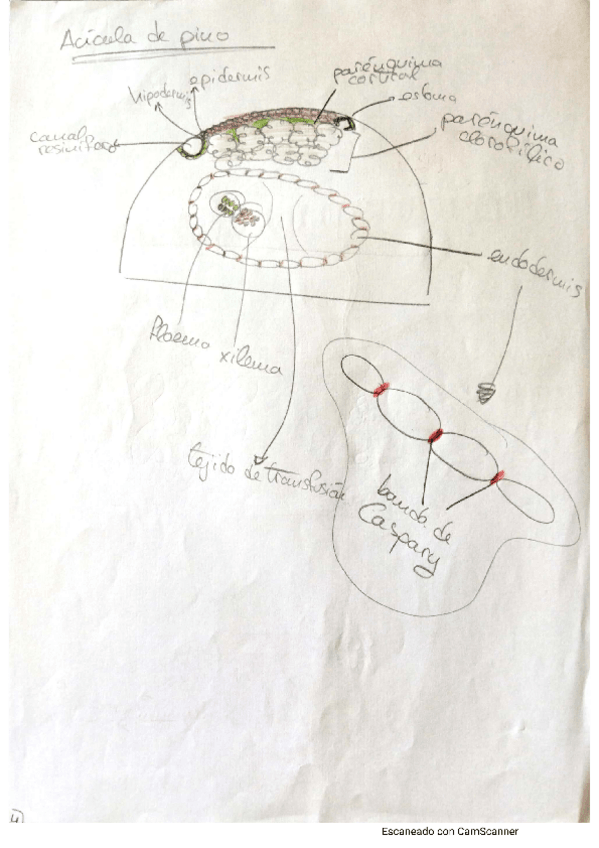 Acícula de pino
epidermis
hipodermis
parénquima
cortical
estoma
canal
resinífero
parénquima
clorofílico
endodermis
floema
xilema
tejido de transfusión
banda de
Caspary
4
Escaneado con CamScanner